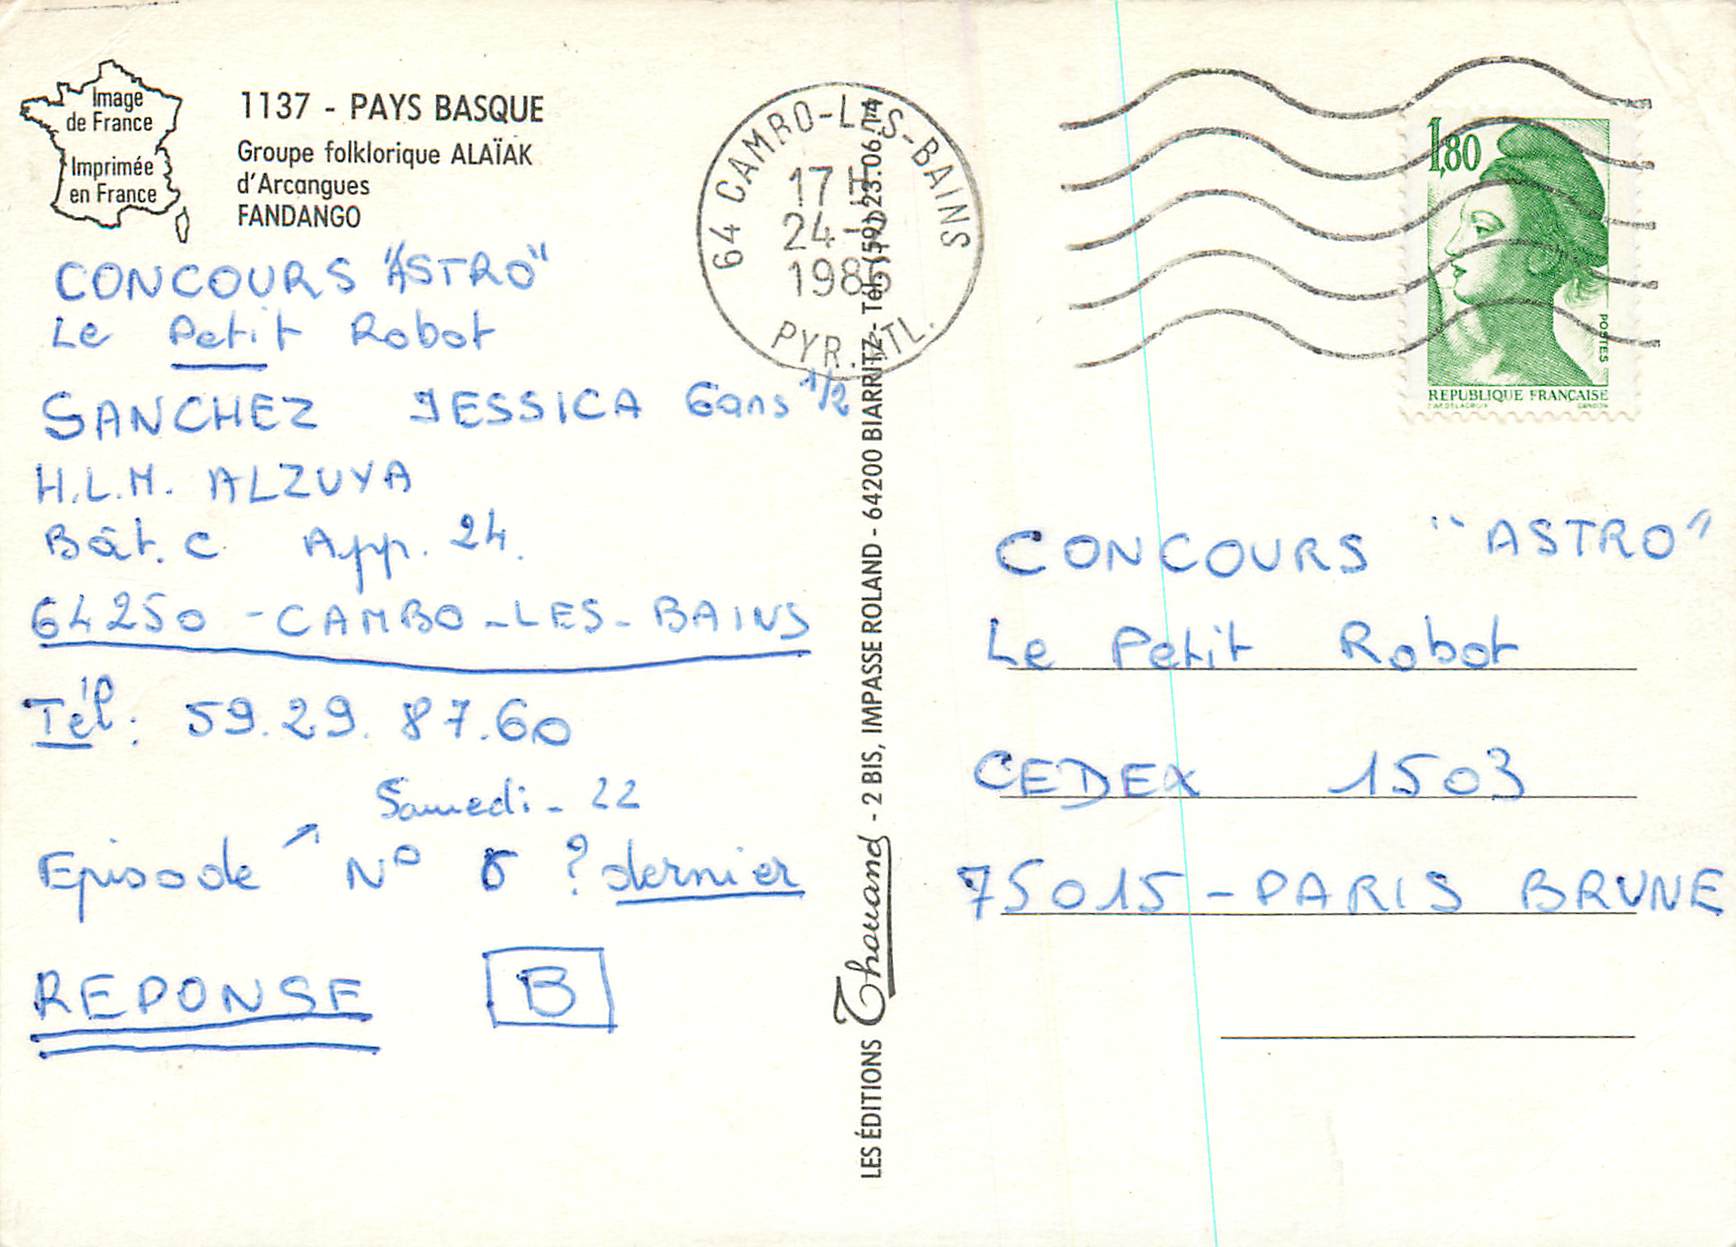 Image
de France
Imprimée
en France
1137 - PAYS BASQUE
Groupe folklorique ALAÏAK
d'Arcangues
FANDANGO
CONCOURS "ASTRO"
Le Petit Robot
SANCHEZ JESSICA 6ans 1/2
H.L.M. ALZUYA
Bât. C App. 24.
64250 - CAMBO-LES-BAINS
Tél: 59.29.87.60
Samedi - 22
Episode N° 6 ? dernier
REPONSE B
LES ÉDITIONS Thouand - 2 BIS, IMPASSE ROLAND - 64200 BIARRITZ - Tél. (59) 23.06.14
64 CAMBO-LES-BAINS
17 H
24-
1986
PYR. ATL.
1,80
POSTES
REPUBLIQUE FRANÇAISE
D'AP. DELACROIX GANDON
CONCOURS "ASTRO"
Le Petit Robot
CEDEX 1503
75015 - PARIS BRUNE